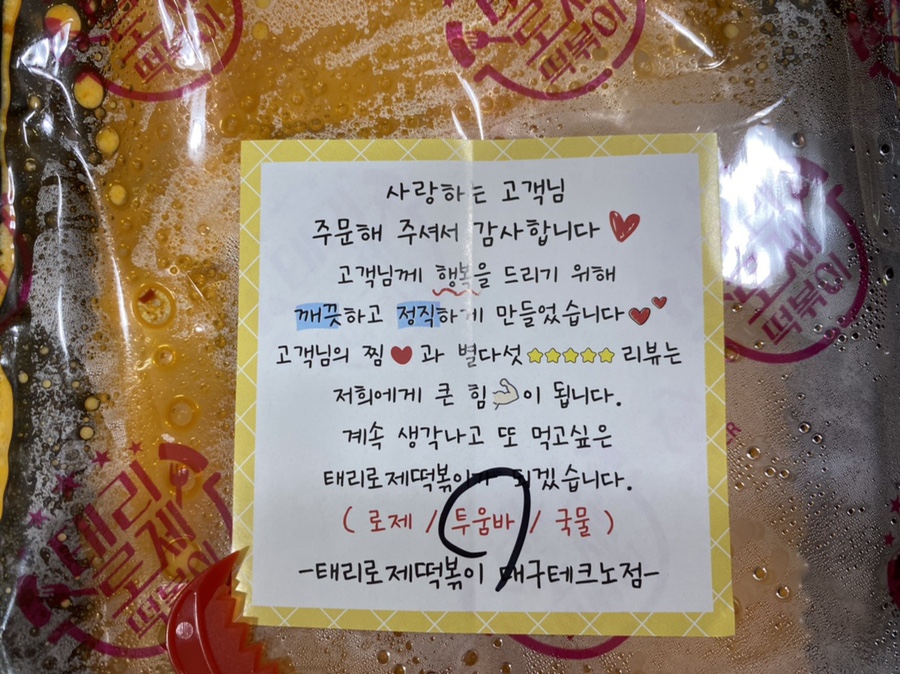 태리
로제
떡볶이
사랑하는 고객님
주문해 주셔서 감사합니다
고객님께 행복을 드리기 위해
깨끗하고 정직하게 만들었습니다
고객님의 찜❤과 별다섯⭐⭐⭐⭐⭐리뷰는
저희에게 큰 힘💪이 됩니다.
계속 생각나고 또 먹고싶은
태리로제떡볶이가 되겠습니다.
( 로제 / 투움바 / 국물 )
-태리로제떡볶이 대구테크노점-
로제
떡볶이
태리
로제
떡볶이